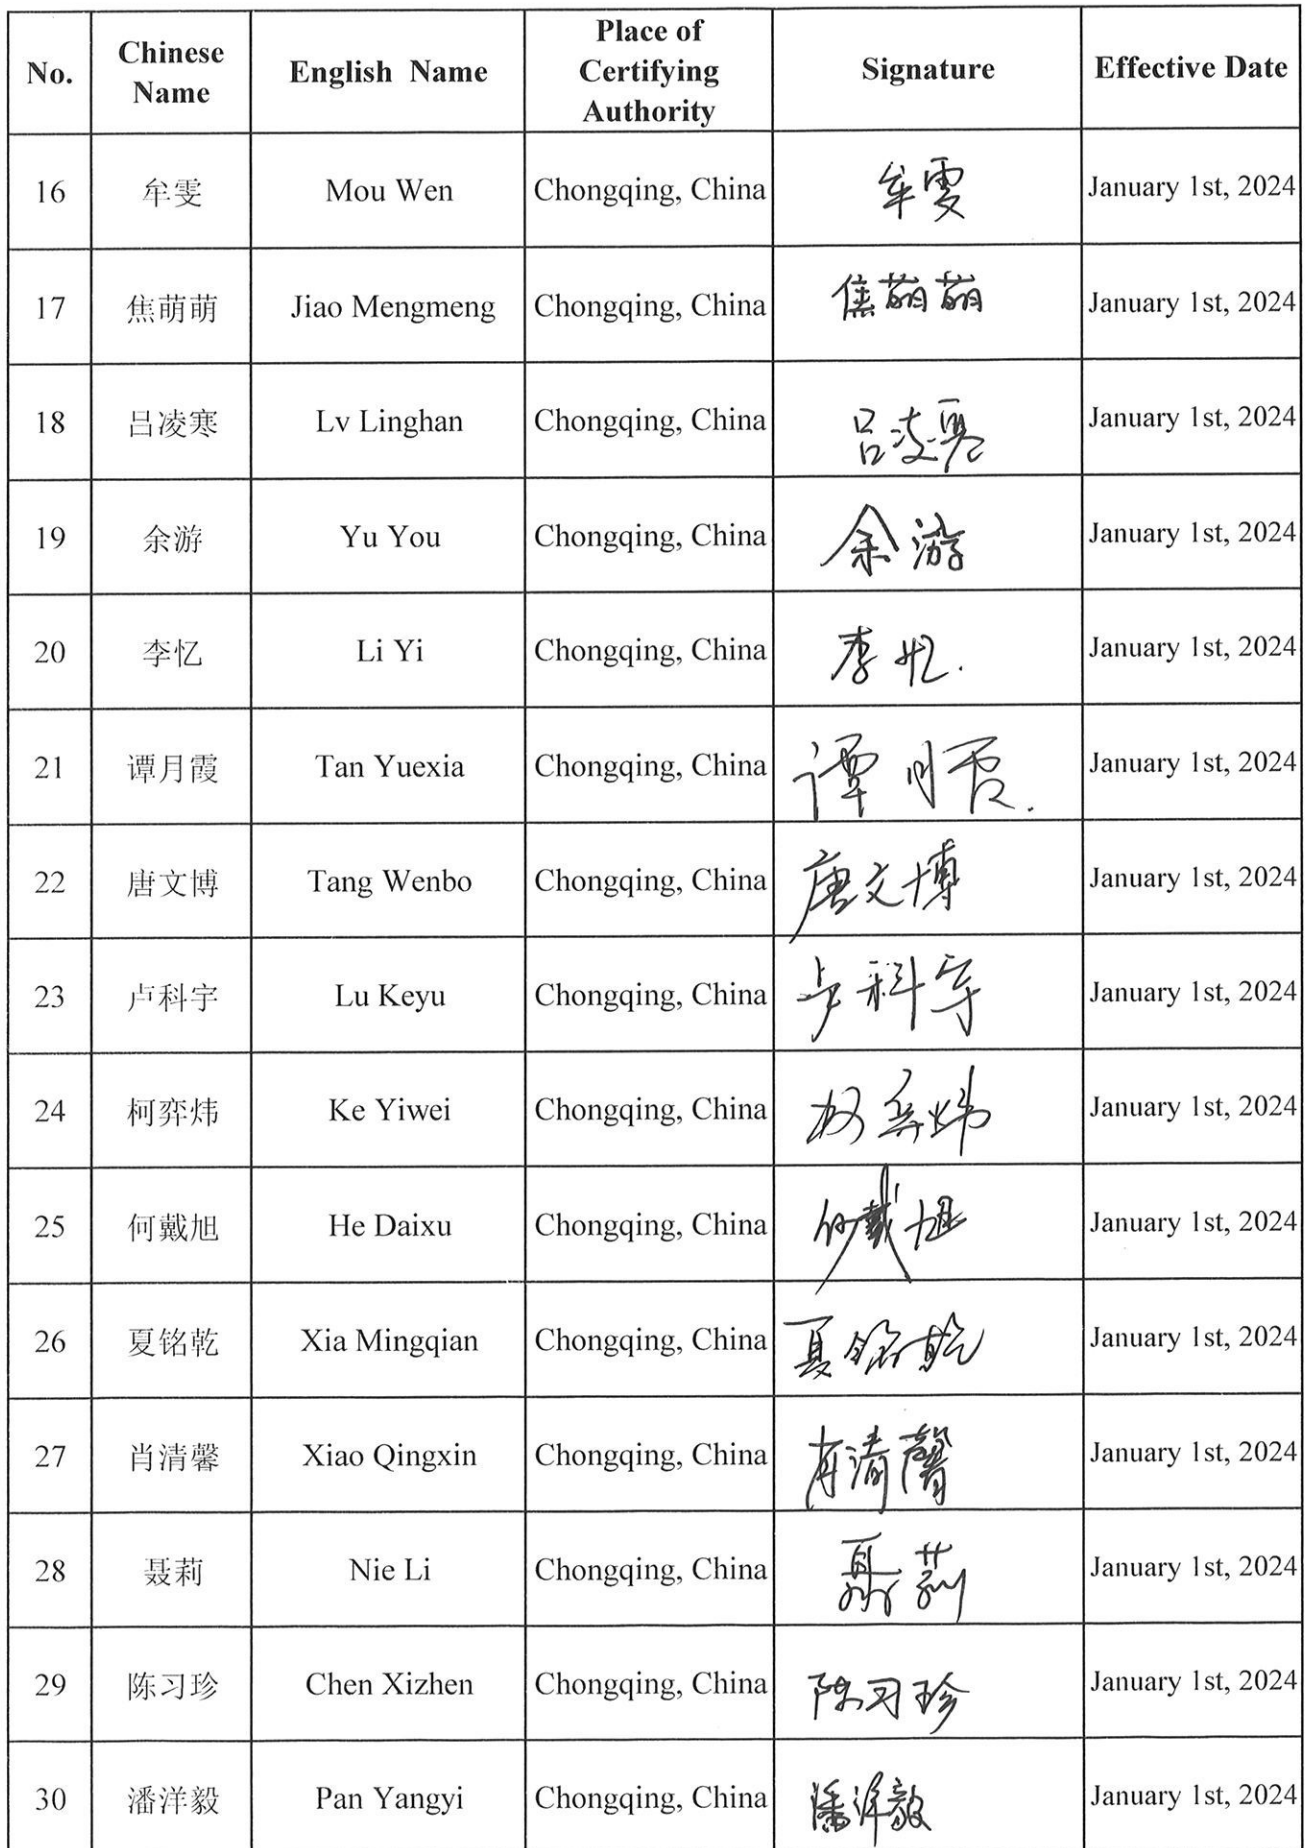 No. Chinese Name English Name Place of Certifying Authority Signature Effective Date
16 牟雯 Mou Wen Chongqing, China 牟雯 January 1st, 2024
17 焦萌萌 Jiao Mengmeng Chongqing, China 焦萌萌 January 1st, 2024
18 吕凌寒 Lv Linghan Chongqing, China 吕凌寒 January 1st, 2024
19 余游 Yu You Chongqing, China 余游 January 1st, 2024
20 李忆 Li Yi Chongqing, China 李忆. January 1st, 2024
21 谭月霞 Tan Yuexia Chongqing, China 谭月霞. January 1st, 2024
22 唐文博 Tang Wenbo Chongqing, China 唐文博 January 1st, 2024
23 卢科宇 Lu Keyu Chongqing, China 卢科宇 January 1st, 2024
24 柯弈炜 Ke Yiwei Chongqing, China 柯弈炜 January 1st, 2024
25 何戴旭 He Daixu Chongqing, China 何戴旭 January 1st, 2024
26 夏铭乾 Xia Mingqian Chongqing, China 夏铭乾 January 1st, 2024
27 肖清馨 Xiao Qingxin Chongqing, China 肖清馨 January 1st, 2024
28 聂莉 Nie Li Chongqing, China 聂莉 January 1st, 2024
29 陈习珍 Chen Xizhen Chongqing, China 陈习珍 January 1st, 2024
30 潘洋毅 Pan Yangyi Chongqing, China 潘洋毅 January 1st, 2024